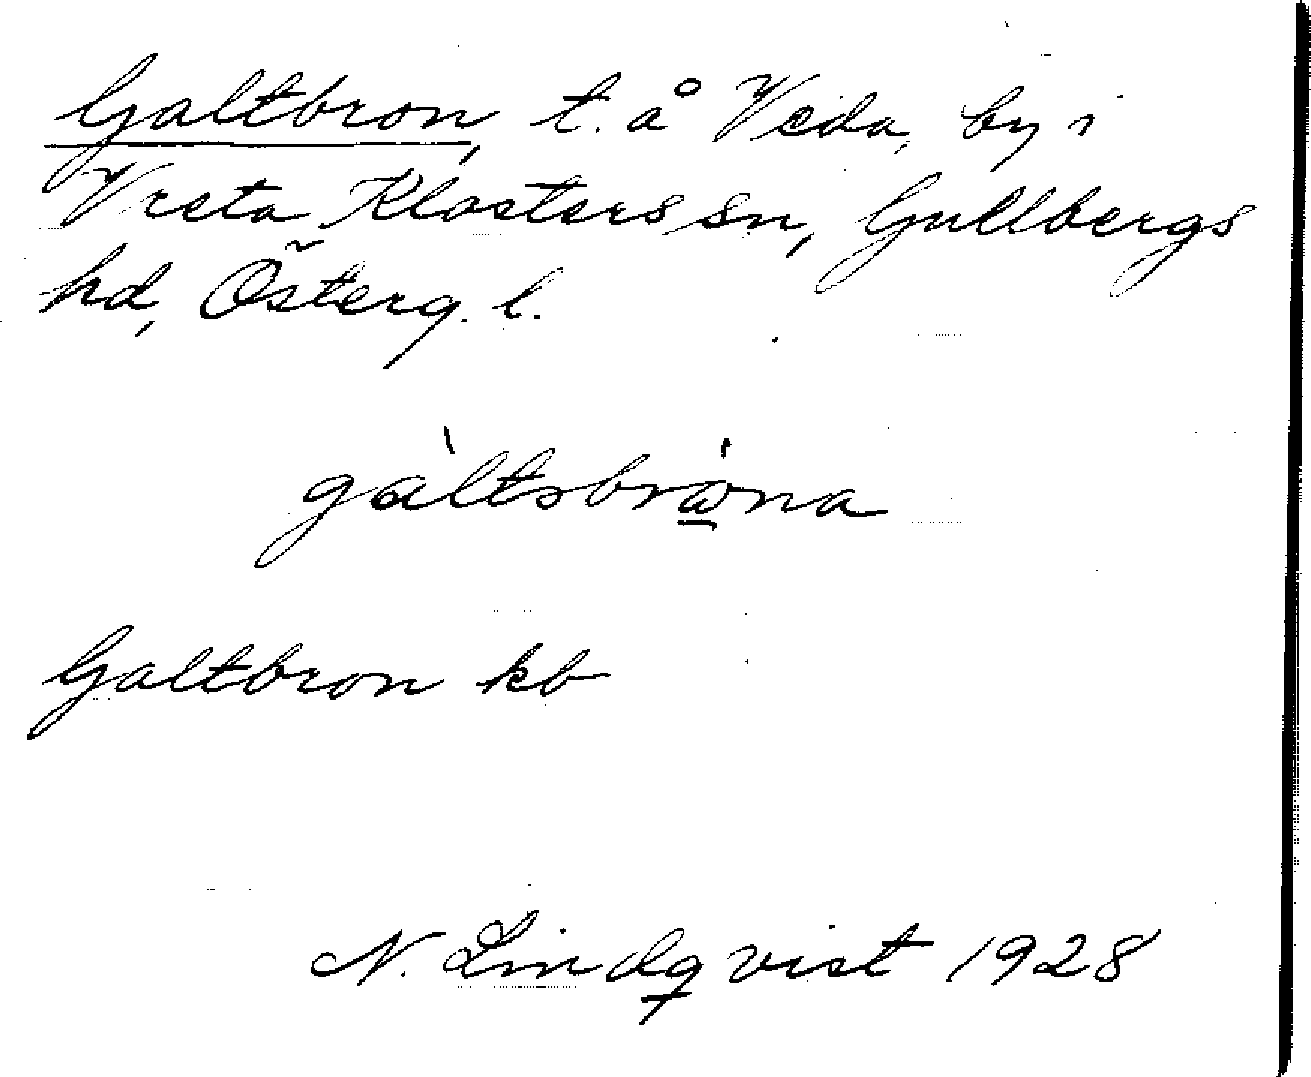 Galtbron, t. å Veda, by i
Vreta Klosters sn, Gullbergs
hd, Österg. l.
gàltsbrǻ̱na
Galtbron kb
N. Lindqvist 1928